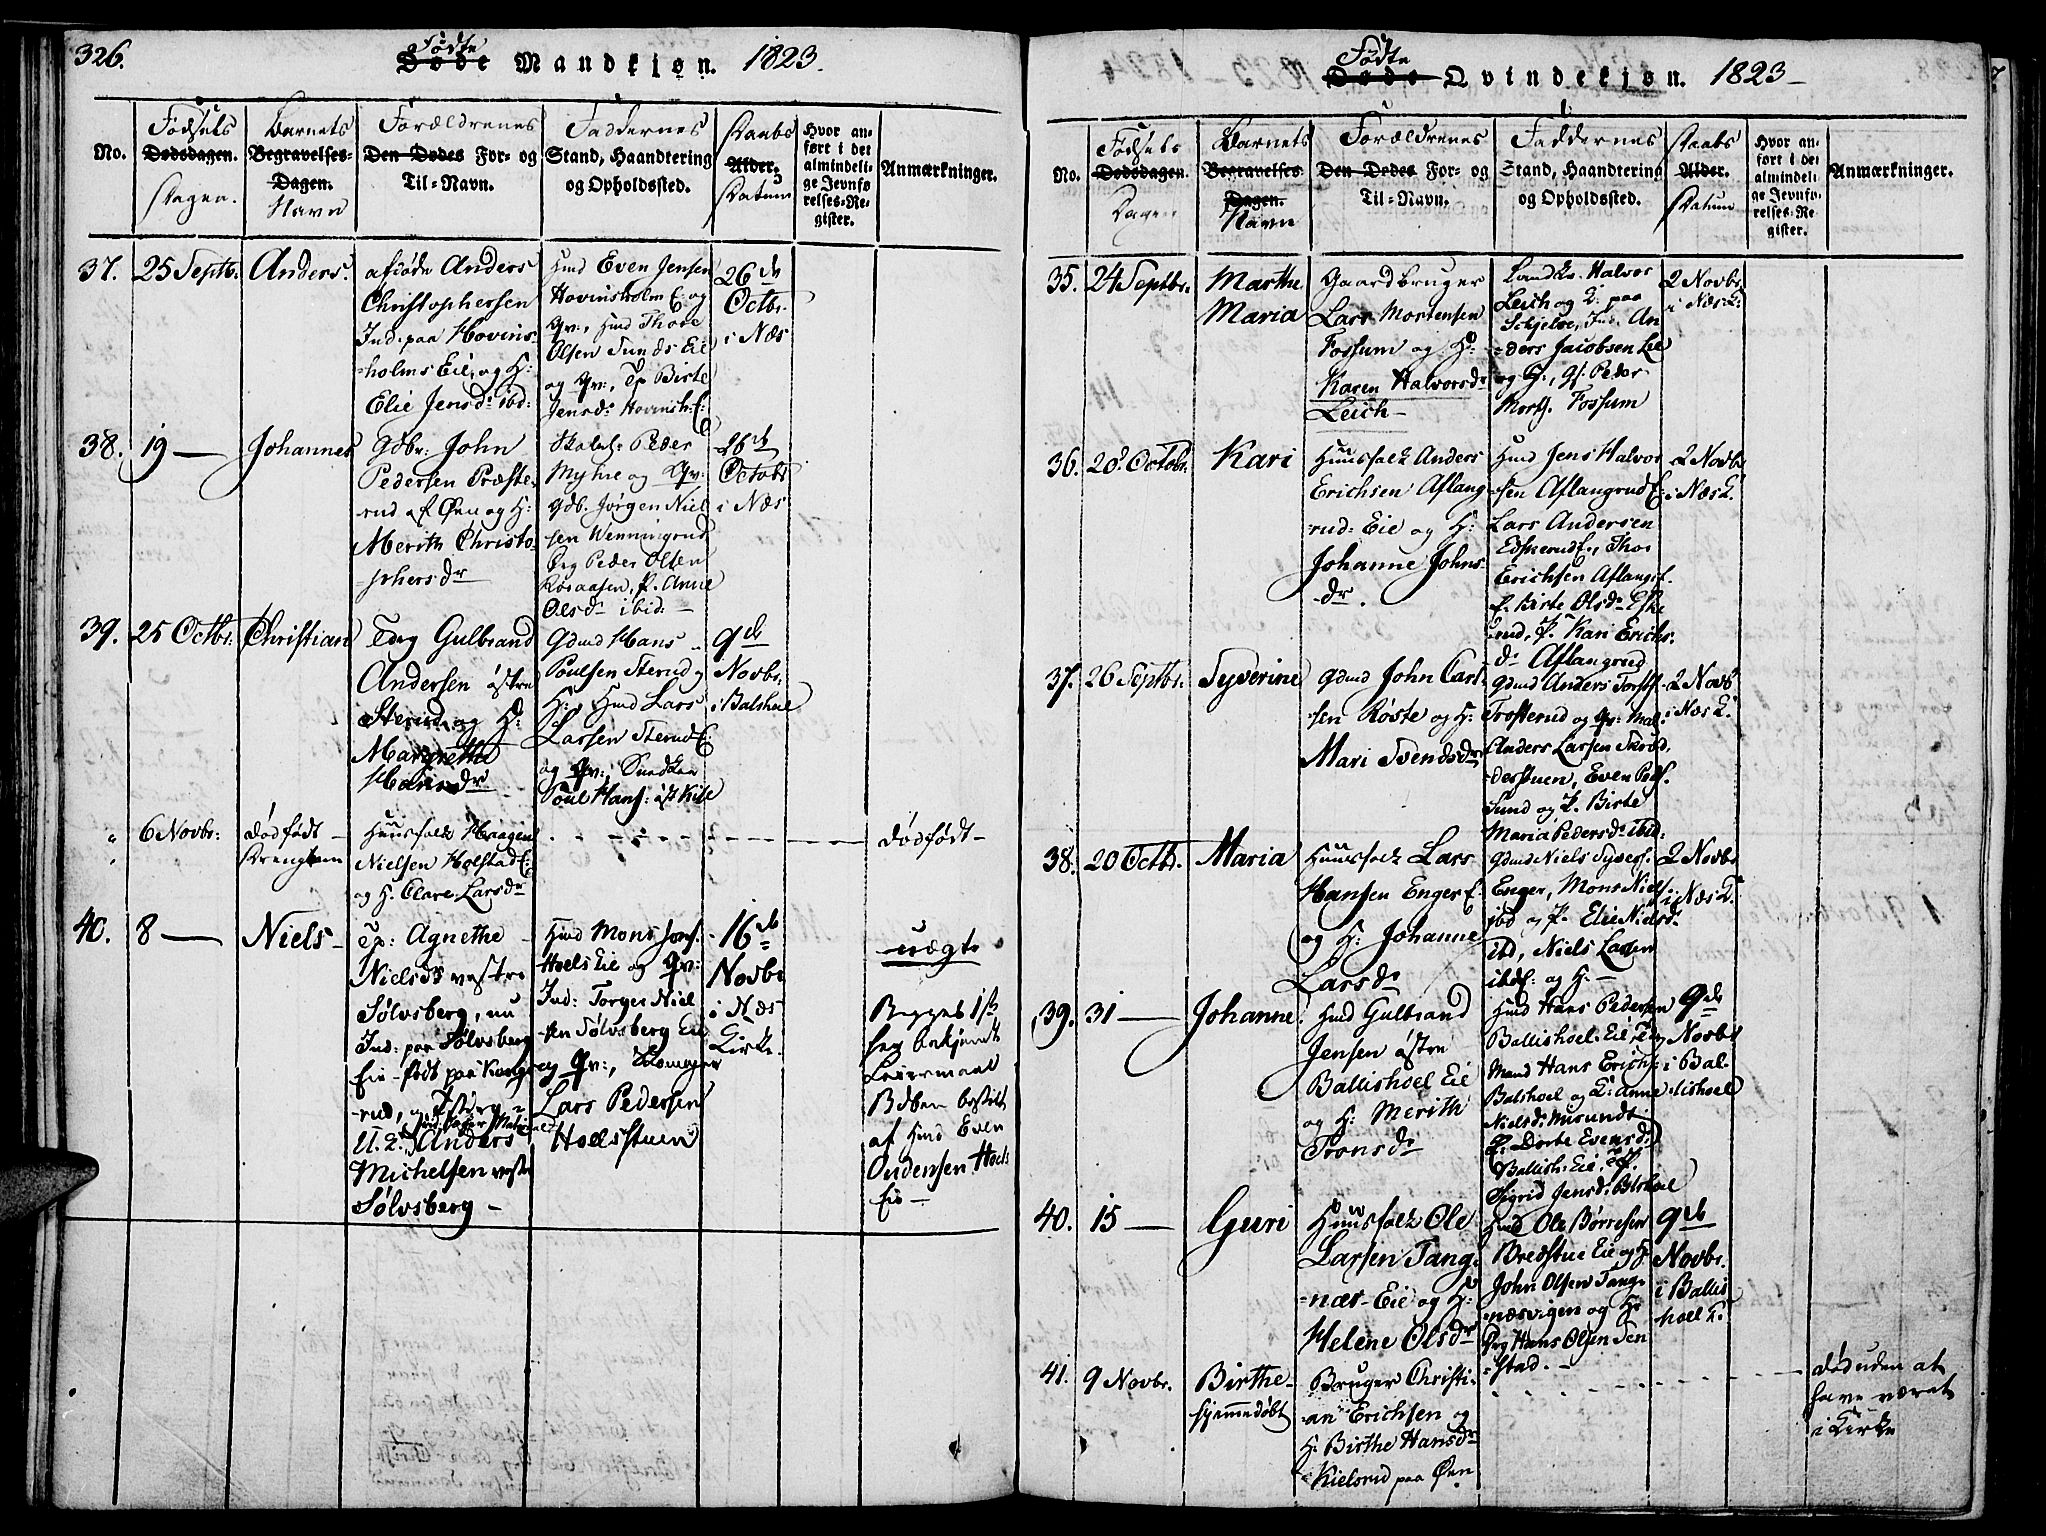 326.
Fødte
Døde Mandkjøn. 1823.
No.
Fødsels
Dødsdagen.
Dagen.
Barnets
Begravelses-
Dagen.
Navn
Forældrenes
Den Dødes For- og
Til-Navn.
Faddernes
Stand, Haandtering
og Opholdssted.
Daabs
Alder.
Datum
Hvor an-
ført i det
almindeli-
ge Jevnfø
relses-Re-
gister.
Anmærkninger.
37. 25 Septb: Anders.
afdøde Anders
Christophersen
Ind. paa Hovins-
holms Eie, og H:
Elie Jensdr ibd:
Hmd Even Jensen
Hovinsholm E: og
Qv:, Hmd Thore
Olsen Sunds Eie
og Qv:, Tp Birte
Jensdr Hovinsh: E:
26de
Octbr.
i Næs
38. 19 — Johannes
Gdbr: John
Pedersen Præste-
rud af Øen og H:
Merith Christo-
phersdr
Skolel: Peder
Myhre og Qv:
Gdb. Jørgen Niel
sen Wenningrud
Drg Peder Olsen
Rosaasen, P. Anne
Olsdr ibid: —
26de
Octobr
i Næs
39. 25 Octbr. Christian
Drg Gulbrand
Andersen østre
Sterud og H:
Margrethe
Hansdr
Gdmd Hans
Poulsen Sterud og
H:, Hmd Lars
Larsen Sterud E:
og Qv:, Snedker
Poul Hans: østr Kise
9de
Novbr.
i Balshoel
6 Novbr: dødfødt
Drengbarn
Huusfolk Haagen
Nielsen Holstad E:
og H. Clare Larsdr
dødfødt —
40. 8 — Niels —
Tp: Agnethe
Nielsdr vestre
Sølvsberg, nu
Ind: paa Sølvsberg
Eie
rud,
U. K. Anders
Michelsen vestre
Sølvsberg —
Hmd Mons Jons.
Hoels Eie og Qv:
Ind: Torger Niel
sen Sølvsberg Eie
og Qv:,
Lars Pedersen
Hoelsstuen
16de
Novbr
i Næs
Kirke.
uægte
Begges 1ste
sig bekjendte
Leiermaal
Baaren bestilt
af Hmd Even
Andersen Hoels
Eie —
Fødte
Døde Qvindekjøn. 1823 —
No.
Fødsels
Dødsdagen.
Dagen
Barnets
Begravelses
Dagen.
Navn
Forældrenes
Den Dødes For- og
Til-Navn.
Faddernes
Stand, Haandtering
og Opholdssted.
Daabs
Alder.
Datum
Hvor an-
ført i det
almindeli-
ge Jevnfø-
relses-Re-
gister.
Anmærkninger.
35. 24 Septbr. Marthe
Maria
Gaardbruger
Lars Mortensen
Fossum og H:
Karen Halvorsdr
Leich —
Landkr. Halvor
Leich og K: paa
Schjelve, Ind. An
ders Jacobsen Lie
og H:, Gf: Peder
Morts. Fossum
2 Novbr.
i Næs K:
36. 28. Octobr. Kari
Huusfolk Anders
Erichsen Aflang
rud: Eie og H:
Johanne Johns
dr.
Hmd Jens Halvor
sen Aflangrud E:
Lars Andersen
Thor
Erichsen Aflangsr.
P. Birte Olsdr Eske
rud, P. Kari Erichs.
dr Aflangrud
2 Novbr
i Næs K.
37. 26 Septbr. Syverine
Gdmd John Carl
sen Røste og H:
Mari Svendsdr
Gdmd Anders Torsts.
Trosterud og Qv:
Anders Larsen Skrød
derstuen, Even Peds.
Sund og P. Birte
Maria Pedersdr ibid:
2 Novb
i Næs K.
38. 20 Octbr. Maria
Huusfolk Lars
Hansen Enger E.
og H: Johanne
Larsdr
Gdmd Niels Syvers.
Enger, Mons Niels
ibd og P. Elie Nielsdr
ibd, Niels Larsen
ibd: og H: —
2 Novbr
i Næs K.
39. 31 — Johanne
Hmd Gulbrand
Jensen østre
Ballishoel Eie
og H: Merith
Tronsdr
Hmd Hans Pedersen
Ballishoel Eie,
mand Hans Erichs.
Balshoel og K: Anne
Nielsdr Misundt
P. Dorte Evensdr
Ballish: Eie,
Sigrid Jensdr Blshoel
9de
Novbr
i Bal-
lishoel
40. 15 — Guri
Huusfolk Ole
Larsen Tang-
næs - Eie og H:
Helene Olsdr
Hmd Ole Børresen
Bredstue Eie og H:
John Olsen Tang-
næsvigen og H:
Drg Hans Olsen Ten
stad. —
9de
Novbr.
i Ballis
hoel K.
41. 9 Novbr. Birthe
hjemmedøbt
Bruger Christi-
an Erichsen og
H: Birthe Hansdr
Kielsrud paa Øen
død uden at
have været
i Kirke